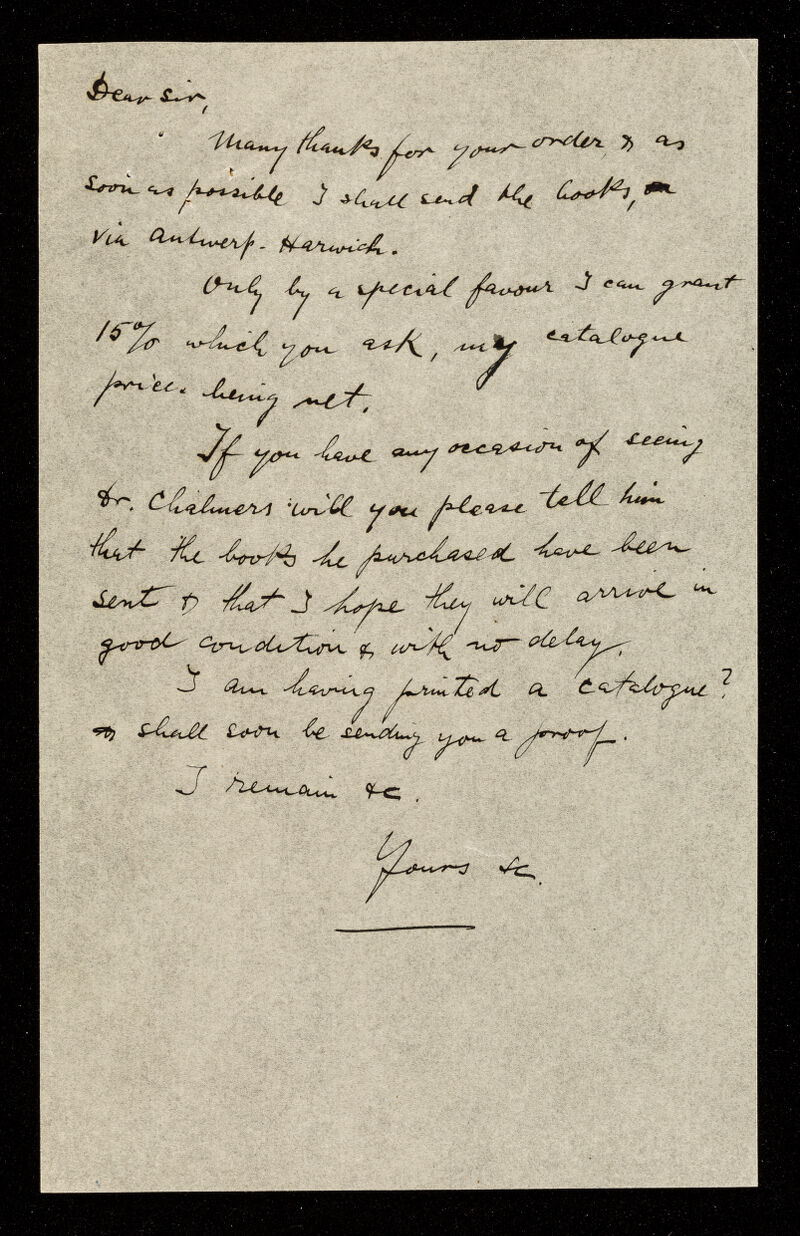 Dear Sir,
Many thanks for your order, & as
soon as possible I shall send the books,
via Antwerp-Harwich.
Only by a special favour I can grant
15% which you ask, my catalogue
prices being net.
If you have any occasion of seeing
Dr. Chalmers will you please tell him
that the books he purchased have been
sent & that I hope they will arrive in
good condition & with no delay.
I am having printed a catalogue?
& shall soon be sending you a proof.
I remain &c.
Yours &c.